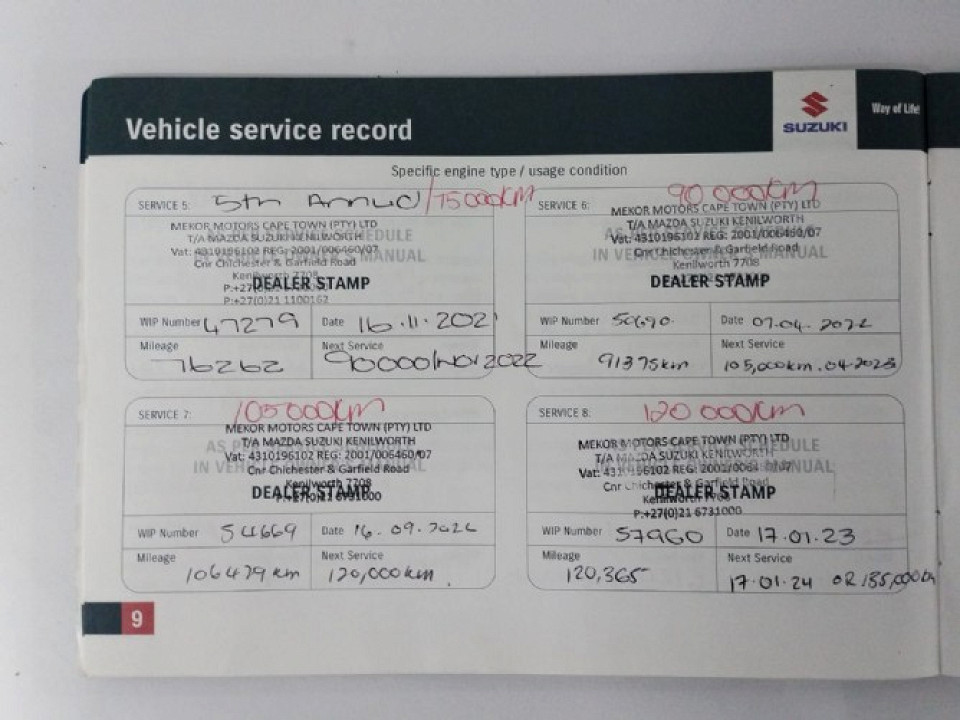 Vehicle service record
SUZUKI
Way of Life
Specific engine type / usage condition
SERVICE 5: 5th Annual /75000KM
MEKOR MOTORS CAPE TOWN (PTY) LTD
T/A MAZDA SUZUKI KENILWORTH
Vat: 4310196102 REG: 2001/006460/07
IN VEHICLE MANUAL
Cnr Chichester & Garfield Road
Kenilworth 7708
DEALER STAMP
P:+27(0)21
P:+27(0)21 1100162
WIP Number 47279 Date 16.11.2021
Mileage 76262 Next Service 90000/Nov 2022
SERVICE 6: 90 000km
MEKOR MOTORS CAPE TOWN (PTY) LTD
T/A MAZDA SUZUKI KENILWORTH
Vat: 4310196102 REG: 2001/006460/07
IN VEHICLE MANUAL
Cnr Chichester & Garfield Road
Kenilworth 7708
DEALER STAMP
WIP Number 50690 Date 07.04.2022
Mileage 91375km Next Service 105,000km.04.2023
SERVICE 7: 105000km
MEKOR MOTORS CAPE TOWN (PTY) LTD
T/A MAZDA SUZUKI KENILWORTH
Vat: 4310196102 REG: 2001/006460/07
IN VEHICLE MANUAL
Cnr Chichester & Garfield Road
Kenilworth 7708
DEALER STAMP
WIP Number 54669 Date 16.09.2022
Mileage 106479 km Next Service 120,000km.
SERVICE 8: 120 000km
MEKOR MOTORS CAPE TOWN (PTY) LTD
SCHEDULE
T/A MAZDA SUZUKI KENILWORTH
Vat: 4310196102 REG: 2001/006460/07
IN VEHICLE MANUAL
Cnr Chichester & Garfield Road
Kenilworth 7708
DEALER STAMP
P:+27(0)21 6731000
WIP Number 57960 Date 17.01.23
Mileage 120,365 Next Service 17.01.24 OR 135,000km
9